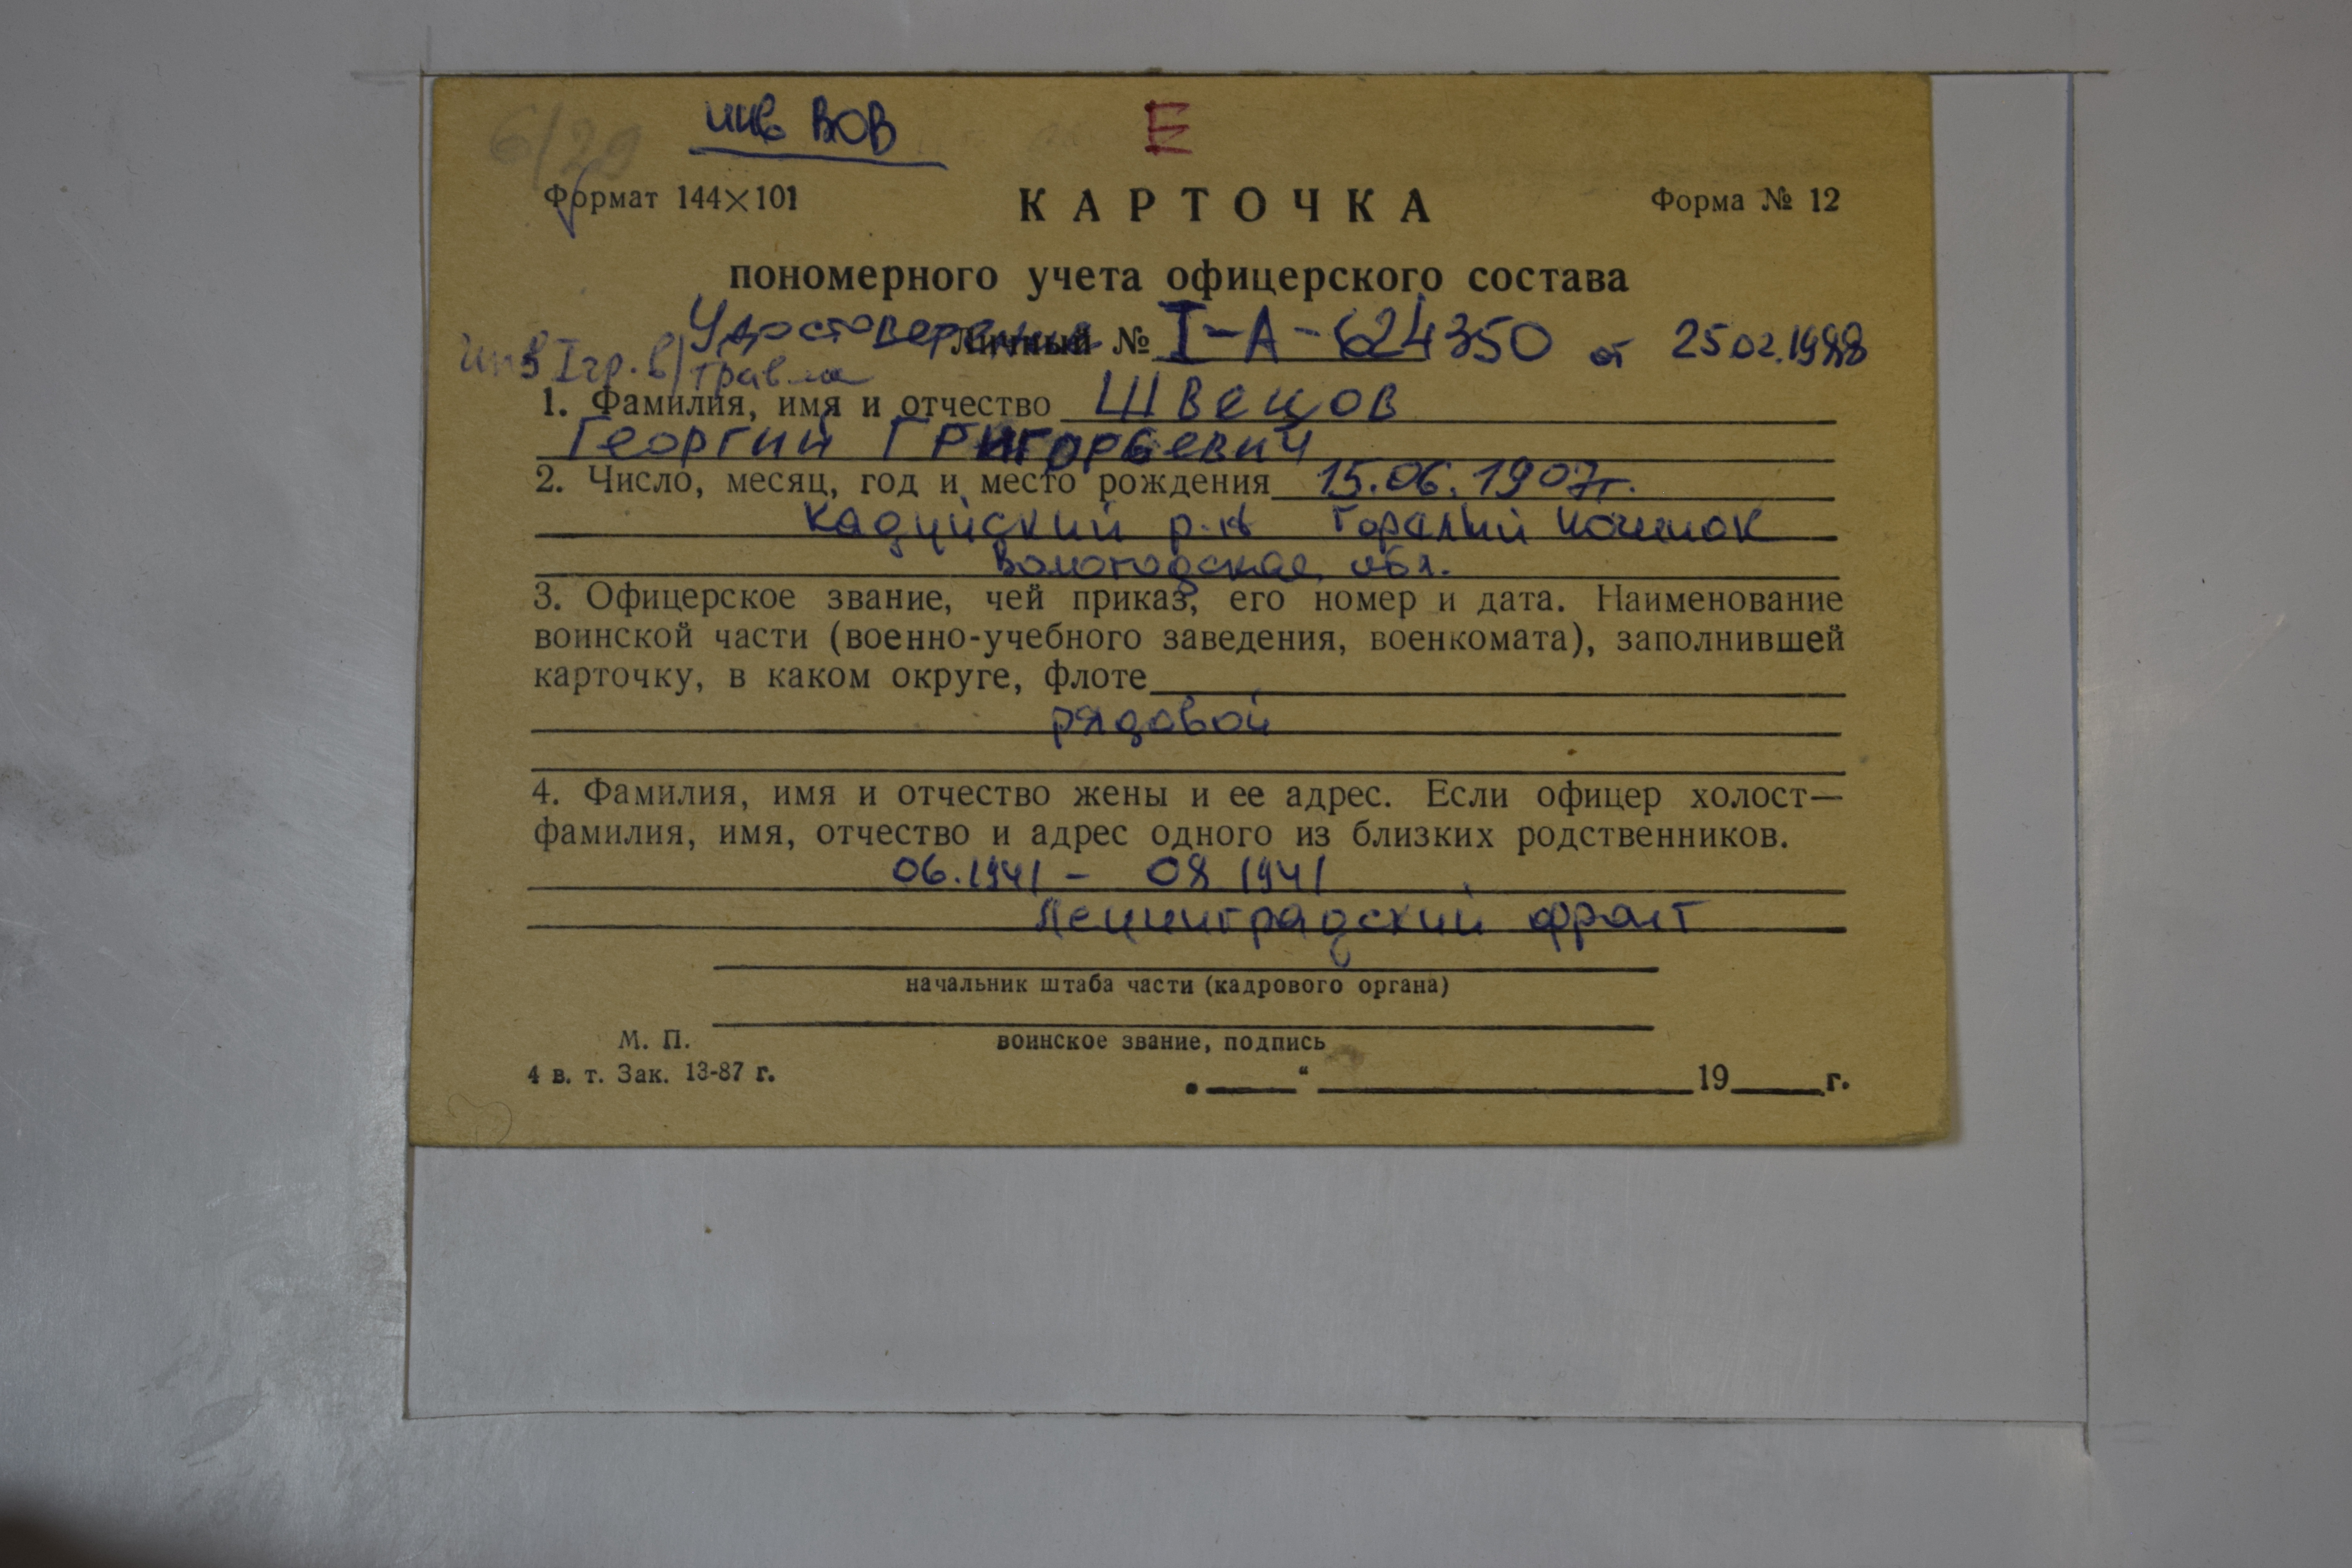 6/29 инв ВОВ Е
Формат 144×101 КАРТОЧКА Форма № 12
пономерного учета офицерского состава
Удостоверение Личный № I-А-624350 от 25.02.1988
инв I гр. в/травма
1. Фамилия, имя и отчество Швецов
Георгий Григорьевич
2. Число, месяц, год и место рождения 15.06.1907г.
Кадуйский р-н Горелый Починок
Вологодская обл.
3. Офицерское звание, чей приказ, его номер и дата. Наименование
воинской части (военно-учебного заведения, военкомата), заполнившей
карточку, в каком округе, флоте
рядовой
4. Фамилия, имя и отчество жены и ее адрес. Если офицер холост—
фамилия, имя, отчество и адрес одного из близких родственников.
06.1941 - 08 1941
Ленинградский фронт
начальник штаба части (кадрового органа)
М. П. воинское звание, подпись
4 в. т. Зак. 13-87 г.
„ “ 19 г.